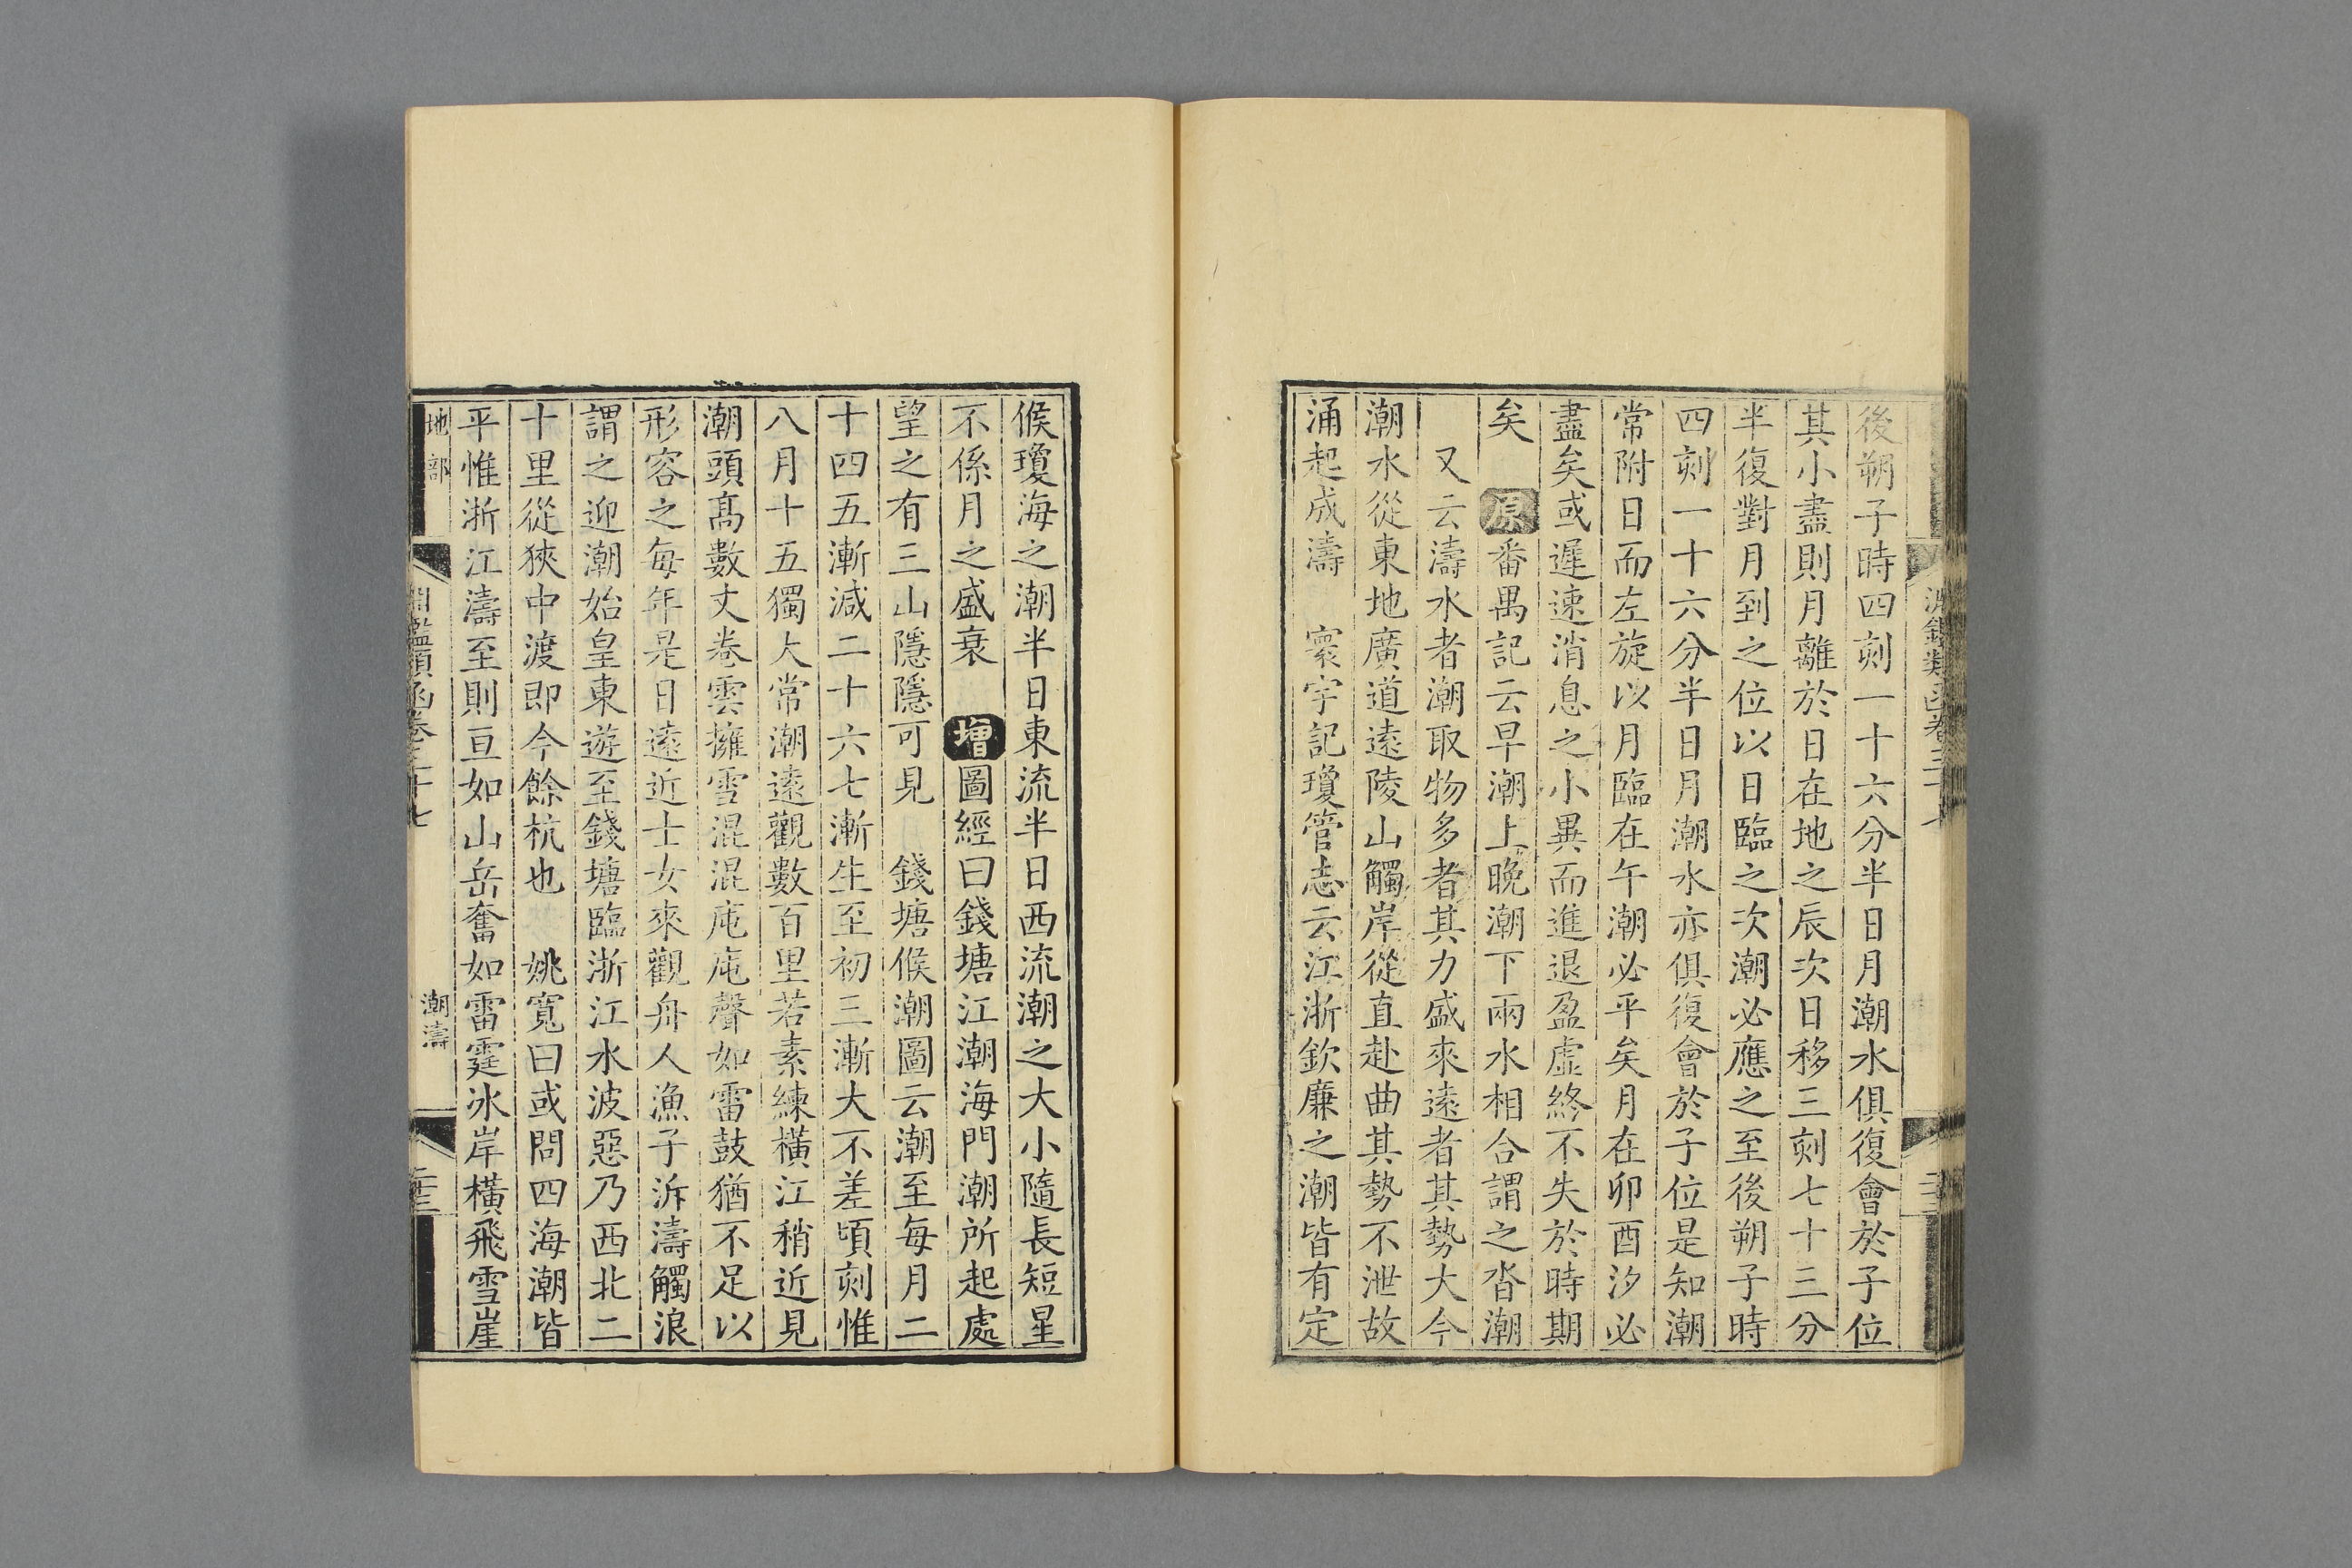 後朔子時四刻一十六分半日月潮水俱復會於子位
其小盡則月離於日在地之辰次日移三刻七十三分
半復對月到之位以日臨之次潮必應之至後朔子時
四刻一十六分半日月潮水亦俱復會於子位是知潮
常附日而左旋以月臨在午潮必平矣月在卯酉汐必
盡矣或遲速消息之小異而進退盈虛終不失於時期
矣　原番禺記云早潮上晚潮下兩水相合謂之沓潮
又云濤水者潮取物多者其力盛來遠者其勢大今
潮水從東地廣道遠陵山觸岸從直赴曲其勢不泄故
涌起成濤　寰宇記瓊管志云江浙欽廉之潮皆有定
候瓊海之潮半日東流半日西流潮之大小隨長短星
不係月之盛衰　增圖經曰錢塘江潮海門潮所起處
望之有三山隱隱可見　錢塘候潮圖云潮至每月二
十四五漸減二十六七漸生至初三漸大不差頃刻惟
八月十五獨大常潮遠觀數百里若素練橫江稍近見
潮頭髙數丈卷雲擁雪混混庉庉聲如雷鼓猶不足以
形容之每年是日遠近士女來觀舟人漁子泝濤觸浪
謂之迎潮始皇東遊至錢塘臨浙江水波惡乃西北二
十里從狹中渡即今餘杭也　姚寬曰或問四海潮皆
平惟浙江濤至則亘如山岳奮如雷霆冰岸橫飛雪崖
地部
淵鑑類函卷三十七
潮濤